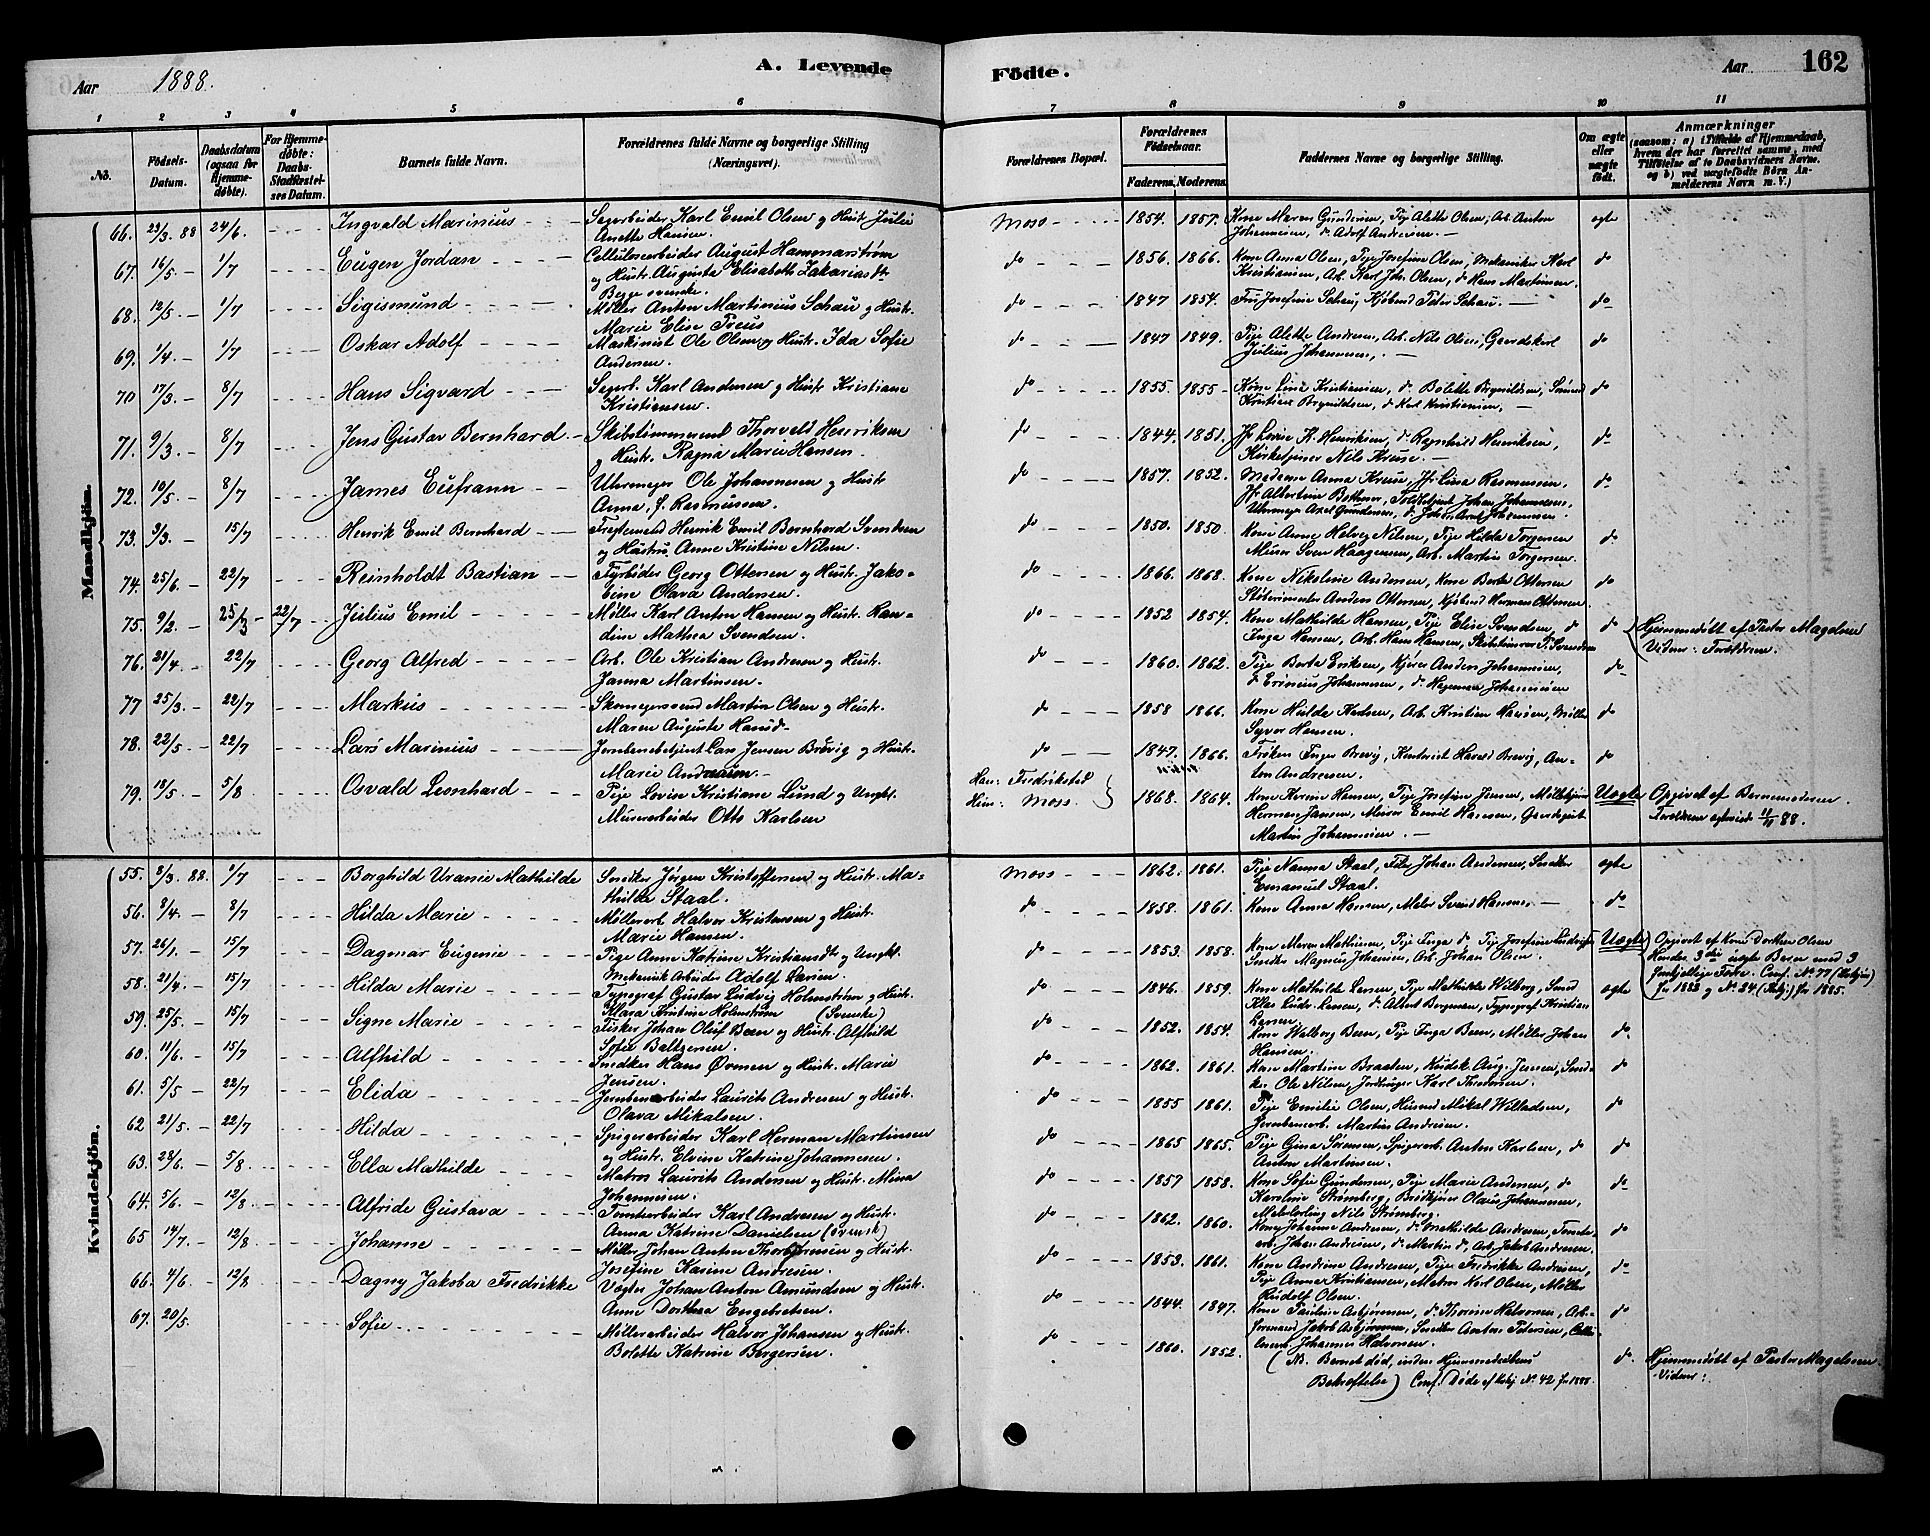 Aar 1888.
A. Levende
Fødte.
Aar
162
1 2 3 4 5 6 7 8 9 10 11
No.
Fødsels-Datum.
Daabsdatum (ogsaa for Hjemme-døbte).
For Hjemme-døbte: Daabs-Stadfæstel-ses Datum.
Barnets fulde Navn.
Forældrenes fulde Navne og borgerlige Stilling (Næringsvei).
Forældrenes Bopæl.
Forældrenes Fødselsaar.
Faderens. Moderens.
Faddernes Navne og borgerlige Stilling.
Om ægte eller uægte født.
Anmærkninger
(saasom: a) i Tilfælde af Hjemmedaab, hvem der har forrettet samme, med Tilføielse af to Daabsvidners Navne. og b) ved uægtefødte Børn An-melderens Navn m. V.)
Mandkjøn.
66. 23/3. 88 24/6. Ingvald Marinius Sagarbeider Karl Emil Olsen og Hust. Julie
Anette Hansen. Moss 1854. 1857. Kone Maren Gundersen, Pige Alette Olsen, Arb. Anton
Johannesen, do Adolf Andresen. ægte
67. 16/5 1/7 Eugen Jordan Cellulosearbeider August Hammarstrøm
og Hustr. Augusta Elisabeth Zakariasdt.
Begge svenske. do 1856. 1866. Kone Anna Olsen, Pige Josefine Olsen, Mekaniker Karl
Kristiansen, Arb. Karl Joh. Olsen, do Hans Martinsen do
68. 12/5. 1/7 Sigismund Møller Anton Martinius Schau og Hustr.
Marie Elise Preus do 1847 1854. Fru Josefine Schau, Kjøbmd Peter Schau. do
69. 1/4. 1/7 Oskar Adolf Maskinist Ole Olsen og Hustr. Ida Sofie
Andersen. do 1847 1849. Pige Alette Andresen, Arb. Nils Olsen, Gaardskarl
Julius Johannesen. do
70 17/3. 8/7 Hans Sigvard Sagarb. Karl Andersen og Hustr Kristiane
Kristiansen. do 1855. 1855 Kone Lina Kristiansen, do Bolette Brynildsen, Smed
Kristian Brynildsen, do Karl Kristiansen, do
71. 9/3. 8/7 Jens Gustav Bernhard. Skibstømmermd Thorvald Henriksen
og Hustr. Ragna Marie Hansen. do 1844. 1851. Jfr Lovise K. Henriksen, do Ragnhild Henriksen,
Kirketjener Nils Kruse. do
72. 10/5. 8/7 James Eufrann Uhrmager Ole Johannesen og Hustr
Anna J. Rasmussen. do 1857. 1852. Madame Anna Kruse, Jfr Lina Rasmussen,
Jfr Albertine Bothner, Toldbetjent Johan Johannesen,
Uhrmager Axel Gundersen, do Johan Axel Johannesen. do
73. 3/3. 15/7 Henrik Emil Bernhard Henrik Emil Bernhard Svendsen
og Hustru Anne Kristine Nilsen. do 1850. 1850. Kone Anne Helvig Nilsen, Pige Hilda Torgersen
Murer Sven Haagensen, Arb. Martin Torgersen. do
74. 25/6. 22/7 Reinholdt Bastian Fyrbøder Georg Ottersen og Hustr. Jako-
bine Olava Andersen. do 1866. 1868. Kone Nikoline Andersen, Kone Berte Ottersen
Støberimester Anders Ottersen, Kjøbmd Herman Ottersen do
75. 9/2. 25/3 22/7 Julius Emil Møller Karl Anton Hansen og Hustr. Ran-
dine Mathea Svendsen. do 1852 1854. Kone Mathilde Hansen, Pige Elise Svendsen, do
Inga Hansen, Arb. Hans Hansen, Svendsen do Hjemmedøbt af Pastor Magelsen
Vidner: Forældrene.
76. 21/4. 22/7 Georg Alfred Arb. Ole Kristian Andresen og Hustr.
Janna Martinsen. do 1860. 1862. Pige Berte Eriksen, Kjører Anders Johannesen,
do Johannesen, do Johannesen do
77 25/3. 22/7 Markus Skomagersvend Martin Olsen og Hustr.
Maren Auguste Hansd. do 1858 1866. Kone Hulda Karlsen, Arb. Kristian Hansen, Møller
Syver Hansen. do
78. 22/5. 22/7 Lars Marinius Jernbanebetjent Lars Jensen Brevig og Hustr.
Marie Andreasen. do 1847. 1866. Frøken Inga Brevig, Kontorist Harald Brevig, An-
ton Andresen. do
79. 18/5. 5/8 Osvald Leonhard Pige Lovise Kristiane Lund og Ungk.
Murerarbeider Otto Karlsen Han: Fredrikstad
Hun: Moss. 1868. 1864. Kone Karine Hansen, Pige Josefine Jensen, Møllebygger
Herman Jansen, Murer Emil Hansen, Gaardsgut
Martin Johannesen. Uægte Opgivet af Barnemoderen.
Forældrene ægteviede 11/11 88.
Kvindekjøn.
55. 8/3. 88. 1/7 Borghild Uranie Mathilde Snedker Jørgen Kristoffersen og Hust. Ma-
thilda Staal. Moss 1862. 1861. Pige Nanna Staal, Filer Johan Andersen, Snedker
Emanuel Staal. ægte
56. 8/4. 8/7 Hilda Marie Møllerarb. Halvor Kristensen og Hustr.
Marie Hansen. do 1858. 1861. Kone Anna Hansen, Maler Svend Hansen, do
57. 26/1. 15/7 Dagmar Eugenie Pige Anne Katrine Kristiansdt og Ungk.
Mekanisk Arbeider Adolf Larsen. do 1853. 1858. Kone Maren Mathisen, Pige Inga do Pige Josefine Ludvigsen
Snedker Magnus Johansen, Arb. Johan Olsen. Uægte Opgivet af Kone Dorthea Olsen
Hendes 3die uægte Barn med 3
forskjellige Fædre. Conf. No 77 (Kvkjøn)
for 1883 og No. 24. for 1885.
58. 21/4. 15/7 Hilda Marie Typograf Gustav Ludvig Holmstrøm og Hustr.
Klara Kristine Holmstrøm (Svenske) do 1846. 1859. Kone Mathilde Larsen, Pige Mathilde Wilberg, Smed
Klas Ludv. Larsen, do Albert Bergman, Typograf Kristian
Larsen. ægte
59. 25/5. 15/7 Signe Marie Fisker Johan Oluf Been og Hustr. Alfhild
Sofie Baltzersen. do 1852. 1854. Kone Walborg Been, Pige Inga Been, Møller Johan
Hansen. do
60. 11/6. 15/7 Alfhild Snedker Hans Ormen og Hustr. Marie
Jensen. do 1862. 1861. Kone Martine Braaten, Kudsk Aug. Jensen, Sned-
ker Ole Nilsen, Jordbruger Karl Thoresen. do
61. 5/5 22/7 Elida Jernbanearbeider Laurits Andresen og Hustr.
Olava Mikalsen. do 1855 1861. Pige Emilie Olsen, Husmd Mikal Willadsen,
Jernbanearb. Martin Andresen. do
62 21/5. 22/7 Hilda Spigerarbeider Karl Herman Martinsen
og Hustr. Elvine Katrine Johannesen. do 1865 1865. Pige Gina Sørensen, Spigerarb. Anton Karlsen, do
Anton Martinsen. do
63. 28/6. 5/8. Ella Mathilde Matros Laurits Andersen og Hustr. Mina
Johannesen. do 1857 1858. Kone Sofie Gundersen, Pige Marie Andersen, do
Karoline Strømberg, Olaus Johannesen,
Malerlærling Nils Strømberg. do
64. 5/6. 12/8. Alfride Gustava Tomtearbeider Karl Andresen og Hust.
Anna Katrine Danielsen (Svensk) do 1862. 1860. Kone Johanne Andresen, do Mathilde Andersen, Tomte-
arb. Johan Andresen, do Martin do, Arb. Jakob Andresen. do
65 14/7. 12/8. Johanne Møller Johan Anton Thorbjørnsen og Hustr.
Josefine Karine Andresen. do 1853. 1861. Kone Andrine Andresen, Pige Fredrikke Andresen,
Pige Anna Kristiansen, Matros Karl Olsen, Møller
Rudolf Olsen. do
66. 4/6. 12/8. Dagny Jakoba Fredrikke Vægter Johan Anton Amundsen og Hustr.
Anne Dorthea Engebretsen. do 1844. 1847. Kone Pauline Asbjørnsen, do Thorine Halvorsen, Arb.-
Formand Jakob Asbjørnsen, Snedker Anton Petersen,
Johannes Halvorsen. do
67. 20/5. Sofie Møllerarbeider Halvor Johansen og Hustr.
Bolette Katrine Bergersen. do 1860. 1852. (NB. Barnet død, inden Hjemmedaabens
Bekræftelse) Conf. Døde af Kvkj. No. 42 for 1888. do. Hjemmedøbt af Pastor Magelssen.
Vidner: